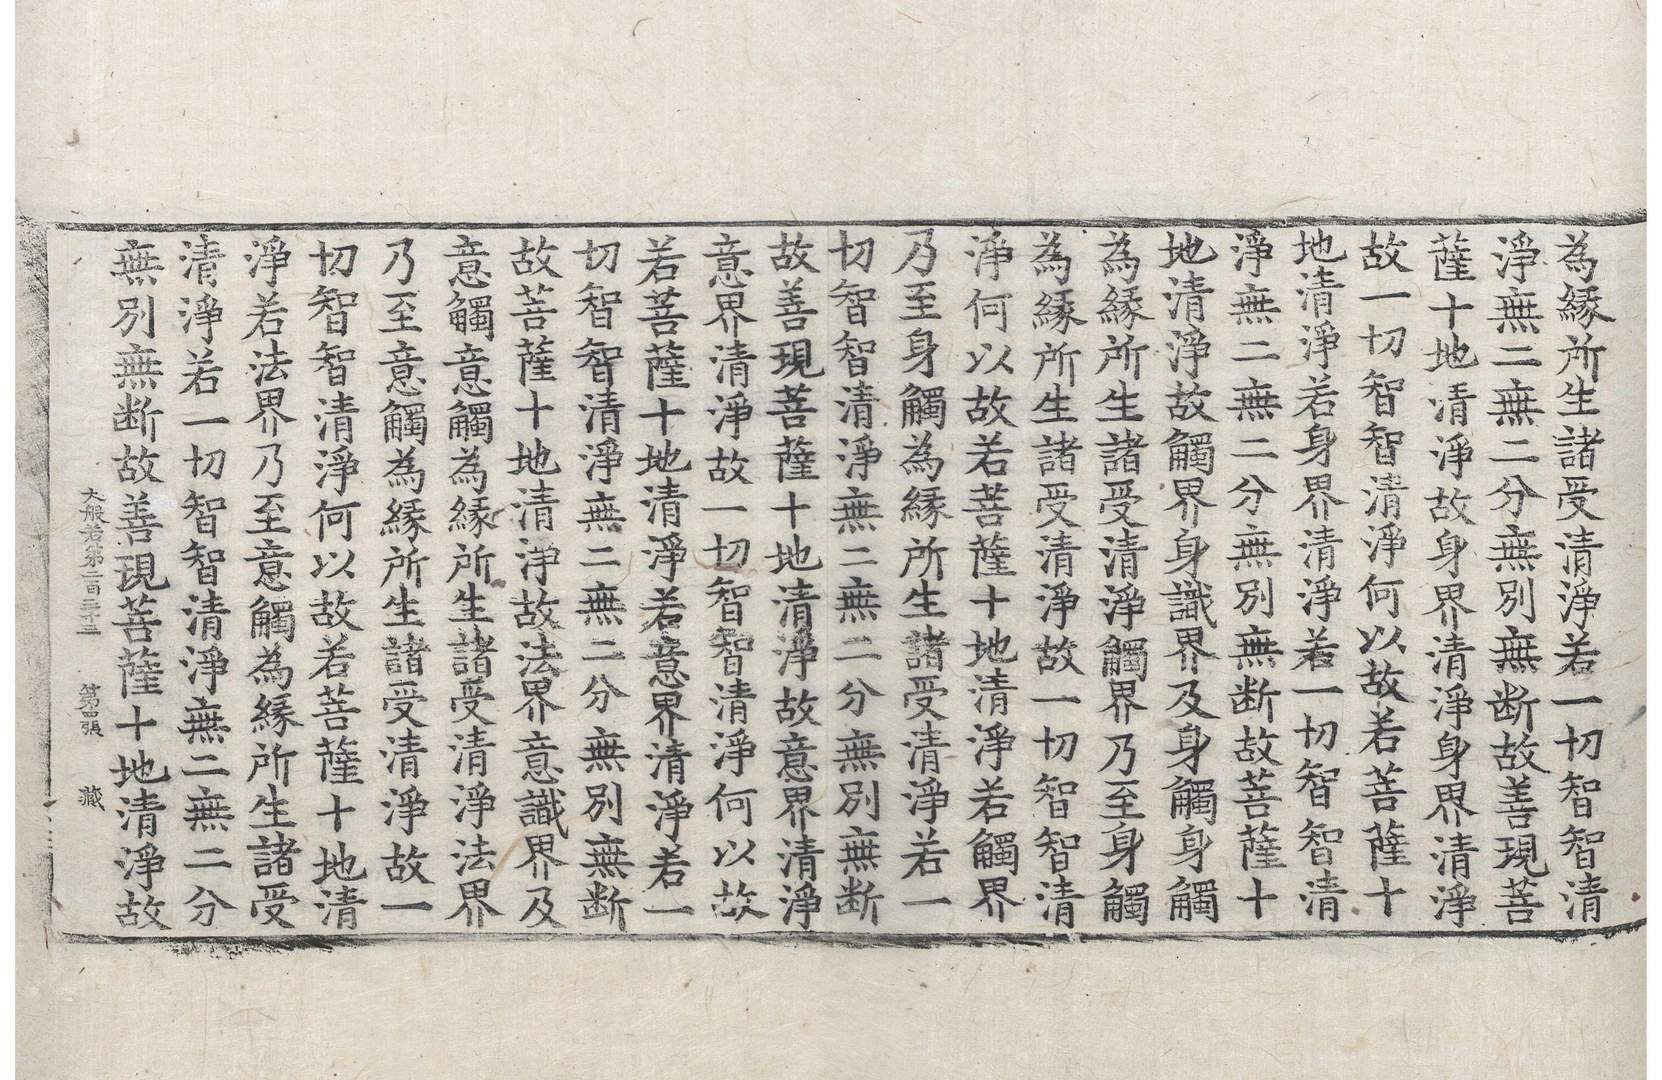 為緣所生諸受清淨若一切智智清
淨無二無二分無別無断故善現菩
薩十地清淨故身界清淨身界清淨
故一切智智清淨何以故若菩薩十
地清淨若身界清淨若一切智智清
淨無二無二分無別無断故菩薩十
地清淨故觸界身識界及身觸身觸
為緣所生諸受清淨觸界乃至身觸
為緣所生諸受清淨故一切智智清
淨何以故若菩薩十地清淨若觸界
乃至身觸為緣所生諸受清淨若一
切智智清淨無二無二分無別無断
故善現菩薩十地清淨故意界清淨
意界清淨故一切智智清淨何以故
若菩薩十地清淨若意界清淨若一
切智智清淨無二無二分無別無断
故菩薩十地清淨故法界意識界及
意觸意觸為緣所生諸受清淨法界
乃至意觸為緣所生諸受清淨故一
切智智清淨何以故若菩薩十地清
淨若法界乃至意觸為緣所生諸受
清淨若一切智智清淨無二無二分
無別無断故善現菩薩十地清淨故
大般若第二百三十三 第四張 藏